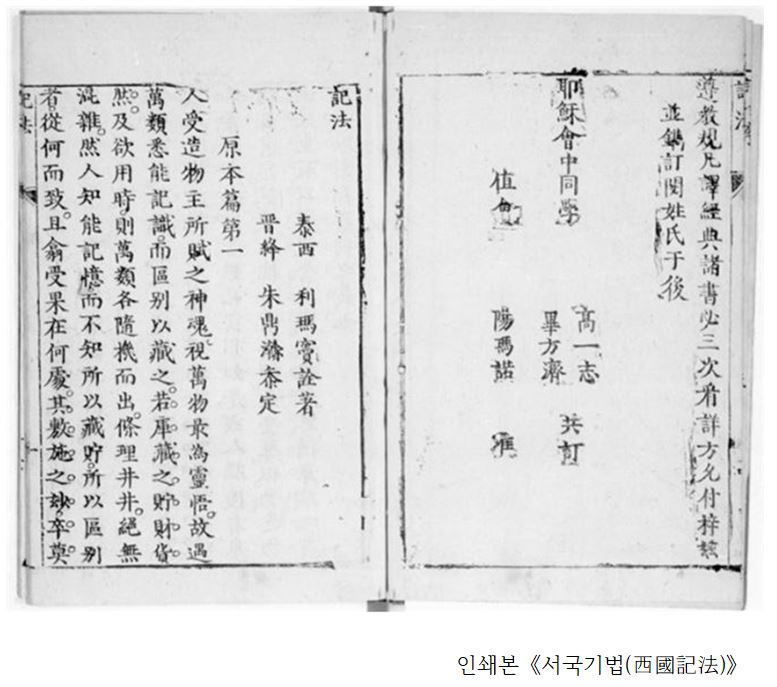 記法
遵教規凡譯經典諸書必三次看詳方允付梓茲
並鐫訂閱姓氏于後
耶穌會中同學
高一志
畢方濟 共訂
值會 陽瑪諾 准
記法
泰西 利瑪竇詮著
晉絳 朱鼎澣叅定
原本篇第一
人受造物主所賦之神魂視萬物最為靈悟。故遇
萬類悉能記識。而區别以藏之。若庫藏之貯財貨
然。及欲用時。則萬類各隨機而出。條理井井。絕無
混雜。然人知能記憶。而不知所以藏貯。所以區别
者。從何而致。且翕受果在何處。其敷施之妙。卒莫
記法
인쇄본《서국기법(西國記法)》